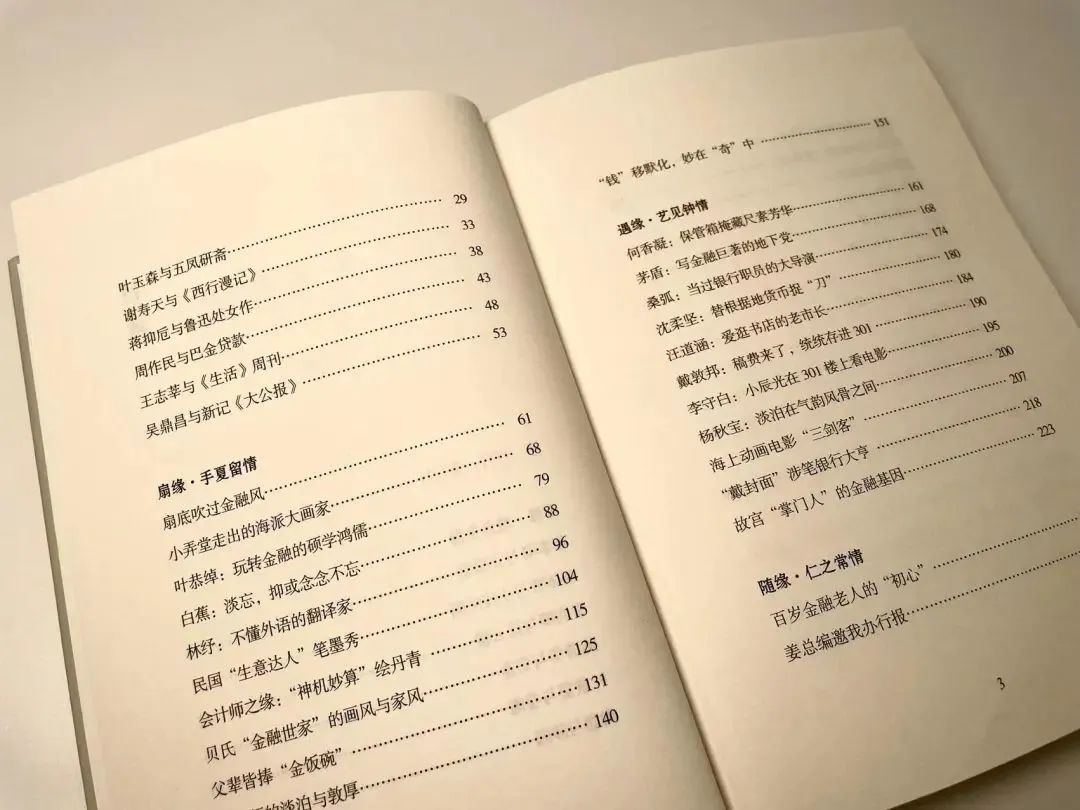 叶玉森与五凤研斋 29
谢寿天与《西行漫记》 33
蒋抑卮与鲁迅处女作 38
周作民与巴金贷款 43
王志莘与《生活》周刊 48
吴鼎昌与新记《大公报》 53
扇缘·手夏留情
扇底吹过金融风 61
小弄堂走出的海派大画家 68
叶恭绰：玩转金融的硕学鸿儒 79
白蕉：淡忘，抑或念念不忘 88
林纾：不懂外语的翻译家 96
民国“生意达人”笔墨秀 104
会计师之缘：“神机妙算”绘丹青 115
贝氏“金融世家”的画风与家风 125
父辈皆捧“金饭碗” 131
的淡泊与敦厚 140
“钱”移默化，妙在“奇”中 151
遇缘·艺见钟情
何香凝：保管箱掩藏尺素芳华 161
茅盾：写金融巨著的地下党 168
桑弧：当过银行职员的大导演 174
沈柔坚：替根据地货币捉“刀” 180
汪道涵：爱逛书店的老市长 184
戴敦邦：稿费来了，统统存进301 190
李守白：小辰光在301楼上看电影 195
杨秋宝：淡泊在气韵风骨之间 200
海上动画电影“三剑客” 207
“戴封面”涉笔银行大亨 218
故宫“掌门人”的金融基因 223
随缘·仁之常情
百岁金融老人的“初心”
姜总编邀我办行报
3